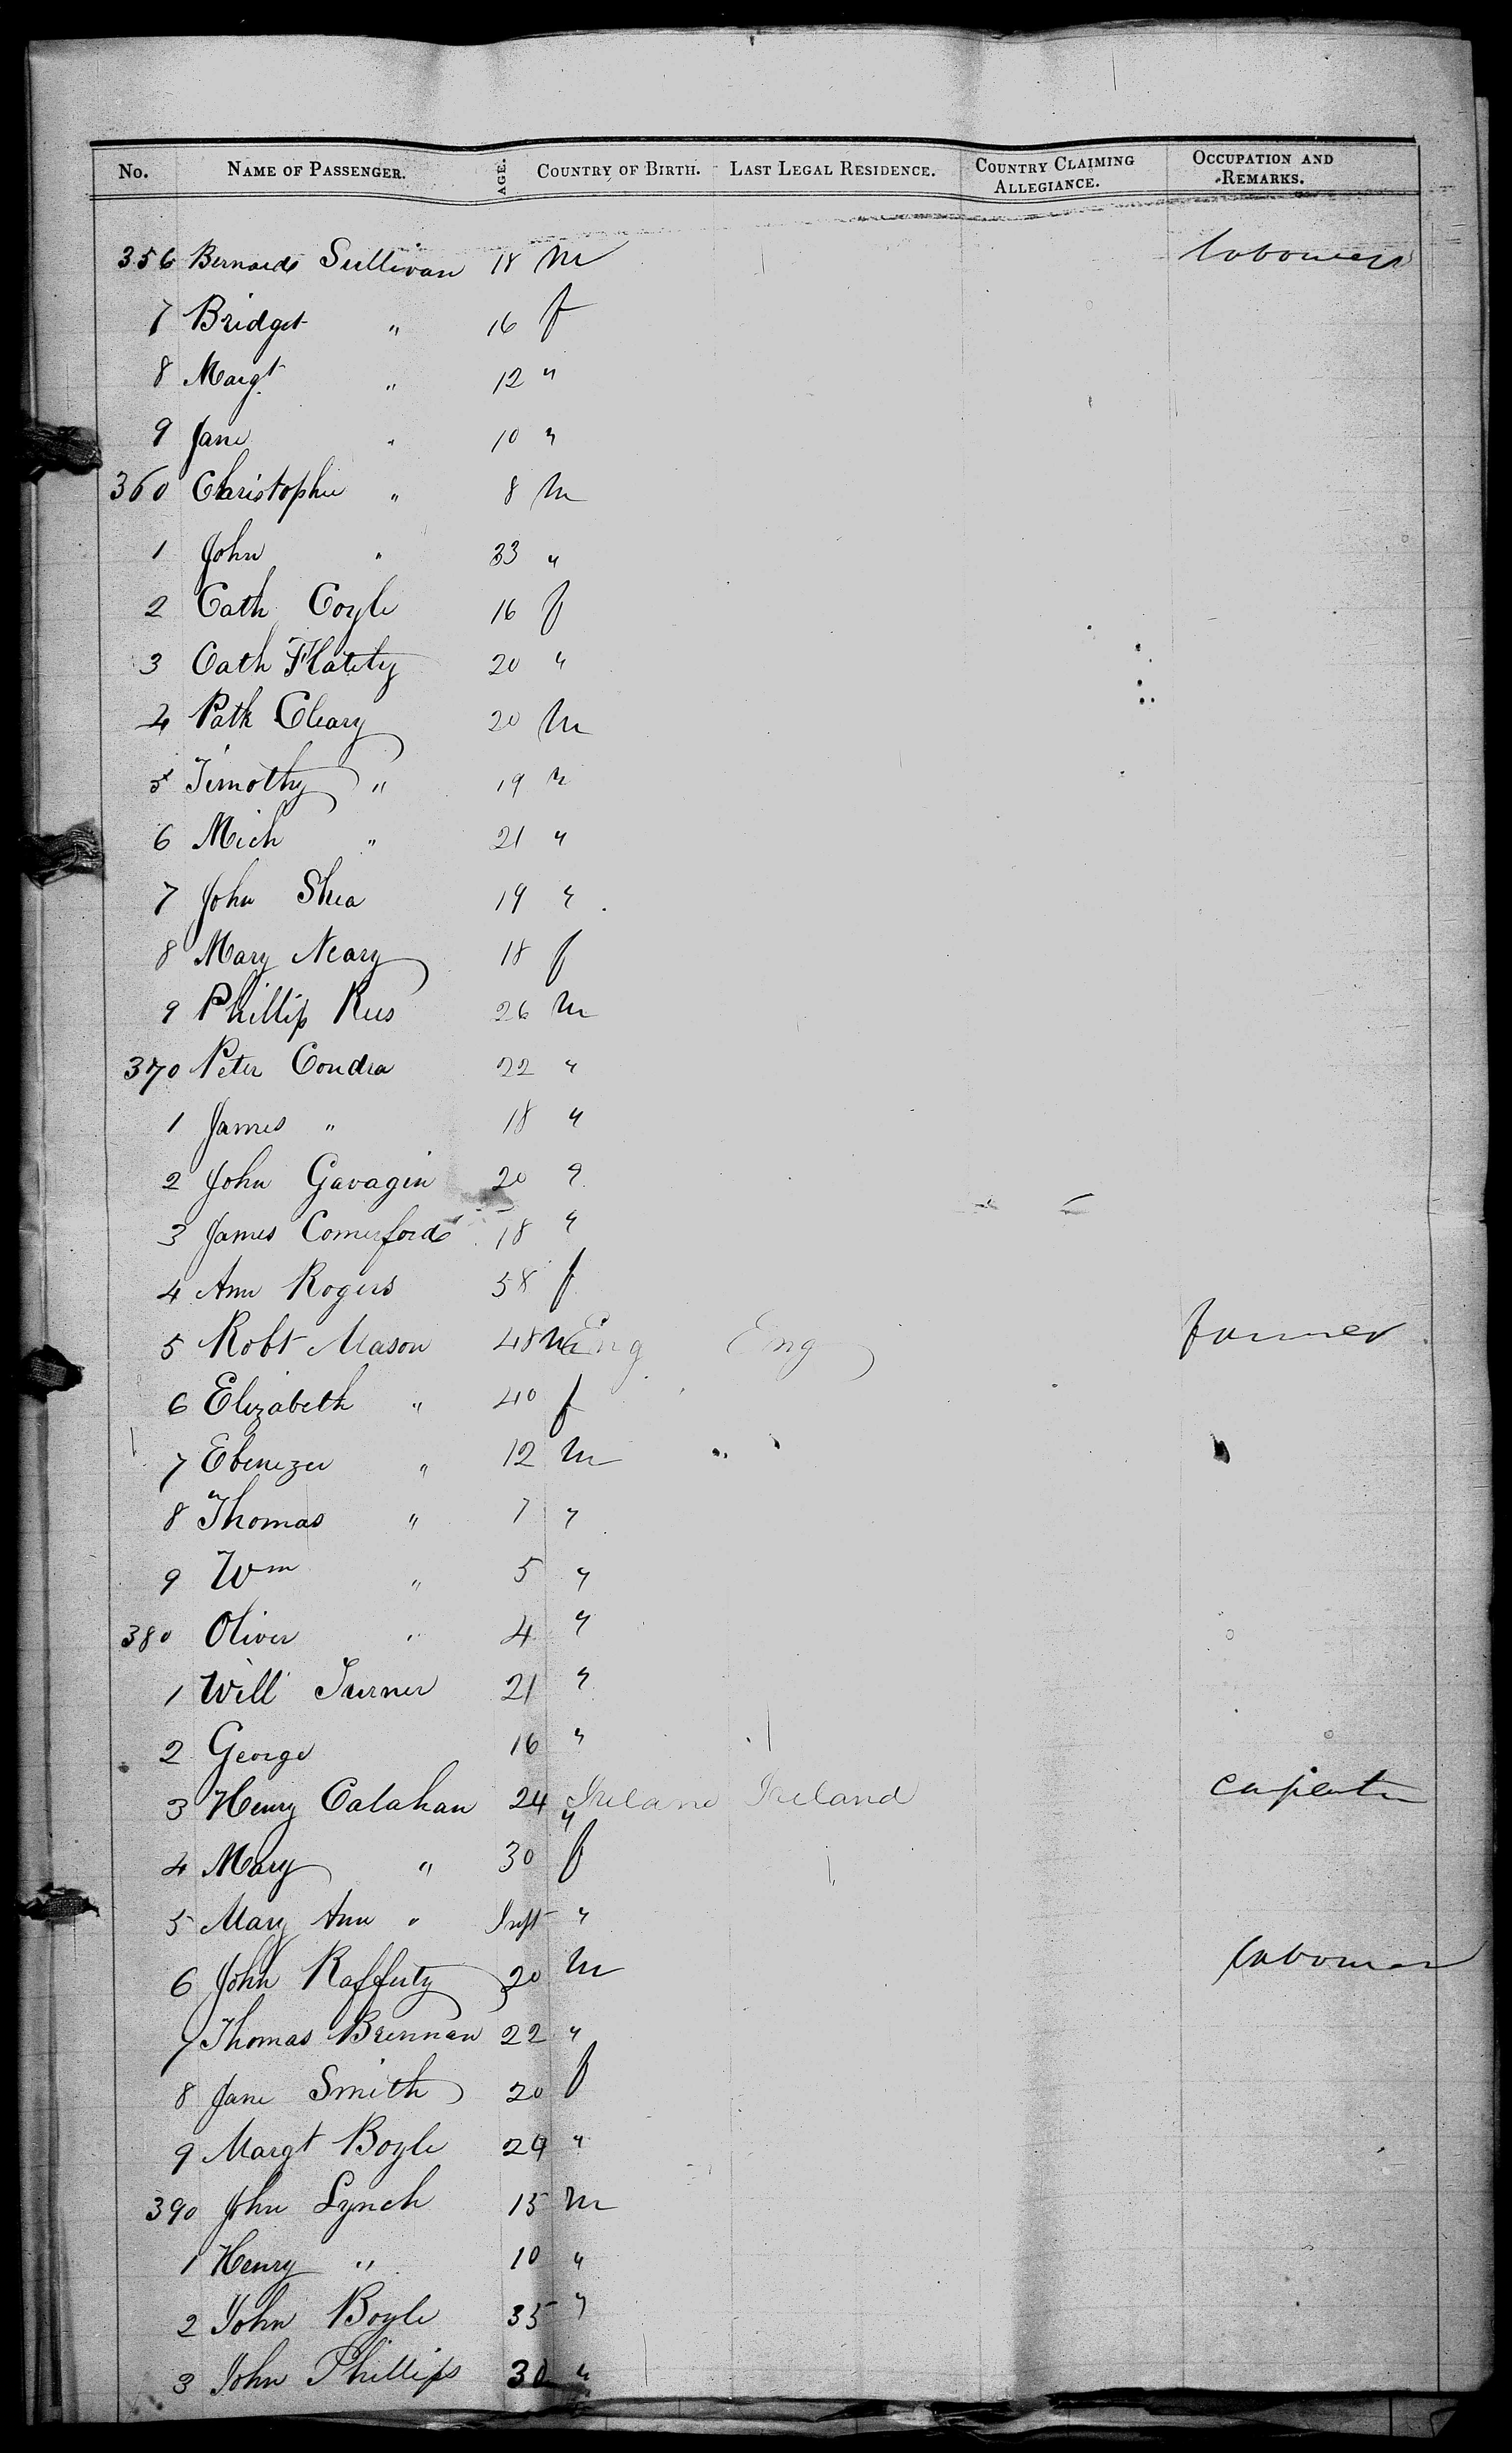 No. NAME OF PASSENGER. AGE. COUNTRY OF BIRTH. LAST LEGAL RESIDENCE. COUNTRY CLAIMING ALLEGIANCE. OCCUPATION AND REMARKS.
356 Bernard Sullivan 18 m labourer
7 Bridget " 16 f
8 Margt " 12 "
9 Jane " 10 "
360 Christopher " 8 m
1 John " 23 "
2 Cath Coyle 16 f
3 Cath Flatity 20 "
4 Patk Cleary 20 m
5 Timothy " 19 "
6 Mich " 21 "
7 John Shea 19 "
8 Mary Neary 18 f
9 Phillip Rees 26 m
370 Peter Condra 22 "
1 James " 18 "
2 John Gavagin 20 "
3 James Comerford 18 "
4 Ann Rogers 58 f
5 Robt Mason 48 m Eng Eng farmer
6 Elizabeth " 40 f
7 Ebenezer " 12 m
8 Thomas " 7 "
9 Wm " 5 "
380 Oliver " 4 "
1 Will Turner 21 "
2 George 16 "
3 Henry Calahan 24 " Ireland Ireland carpenter
4 Mary " 30 f
5 Mary Ann " Inft "
6 John Rafferty 20 m labourer
7 Thomas Brennan 22 "
8 Jane Smith 20 f
9 Margt Boyle 24 "
390 John Lynch 15 m
1 Henry " 10 "
2 John Boyle 35 "
3 John Phillips 30 "